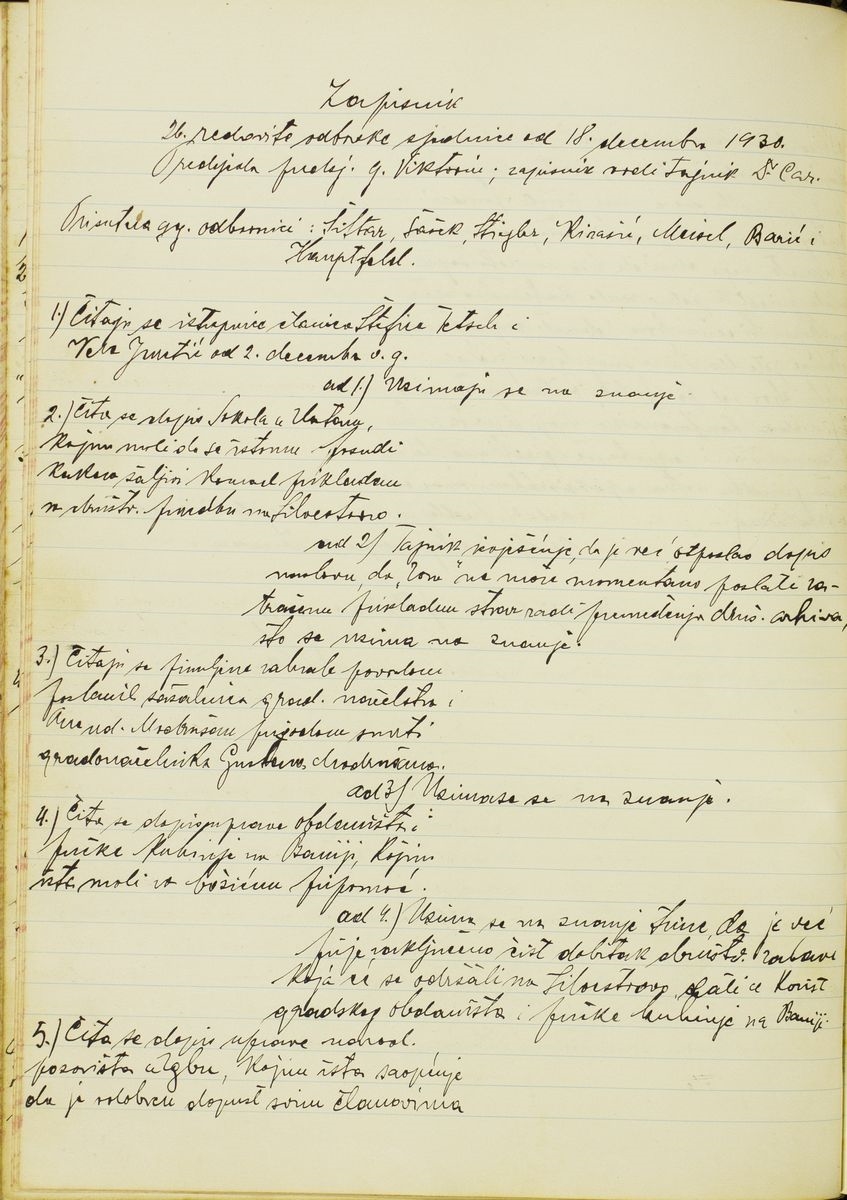 Zapisnik
26. redovite odborske sjednice od 18. decembra 1930.
Predsjeda predsj. g. Viktorin; zapisnik vodi tajnik Dr Car.
Prisutna gg. odbornici: Šiftar, Šašek, Stiegler, Kirasić, Meisel, Barić i
Hauptfeld.
1.) Čitaju se istupnice članica Štefice Tetsch i
Vera od 2. decembra o. g.
ad 1.) Uzimaju se na znanje
2.) Čita se dopis Sokola u
kojim moli da se istome posudi
kakav šaljivi komad prikladan
za društv. priredbu na Silvestrovo.
ad 2) Tajnik izvješćuje, da je već otposlao dopis
naslovu, da „Zora" ne može momentano poslati za-
traženu prikladnu stvar radi premeštenja druš. arhiva,
što se uzima na znanje.
3.) Čitaju se zahvale povodom
poslanih sažalnica grad. načelstvu i
Modrušanu prigodom smrti
gradonačelnika Gustava Modrušana.
ad 3) Uzima se se na znanje.
4.) Čita se dopis uprave obdaništa i
pučke kuhinje na Baniji, kojim
ista moli za božićnu pripomoć.
ad 4.) Uzima se na znanje time, da je već
prije zaključeno čist dobitak društv. zabave
koja će se održati na Silvestrovo dati u korist
gradskog obdaništa i pučke kuhinje na Baniji.
5.) Čita se dopis uprave narod.
pozorišta u Zgbu, kojim ista saopćuje
da je odobren dopust svim članovima